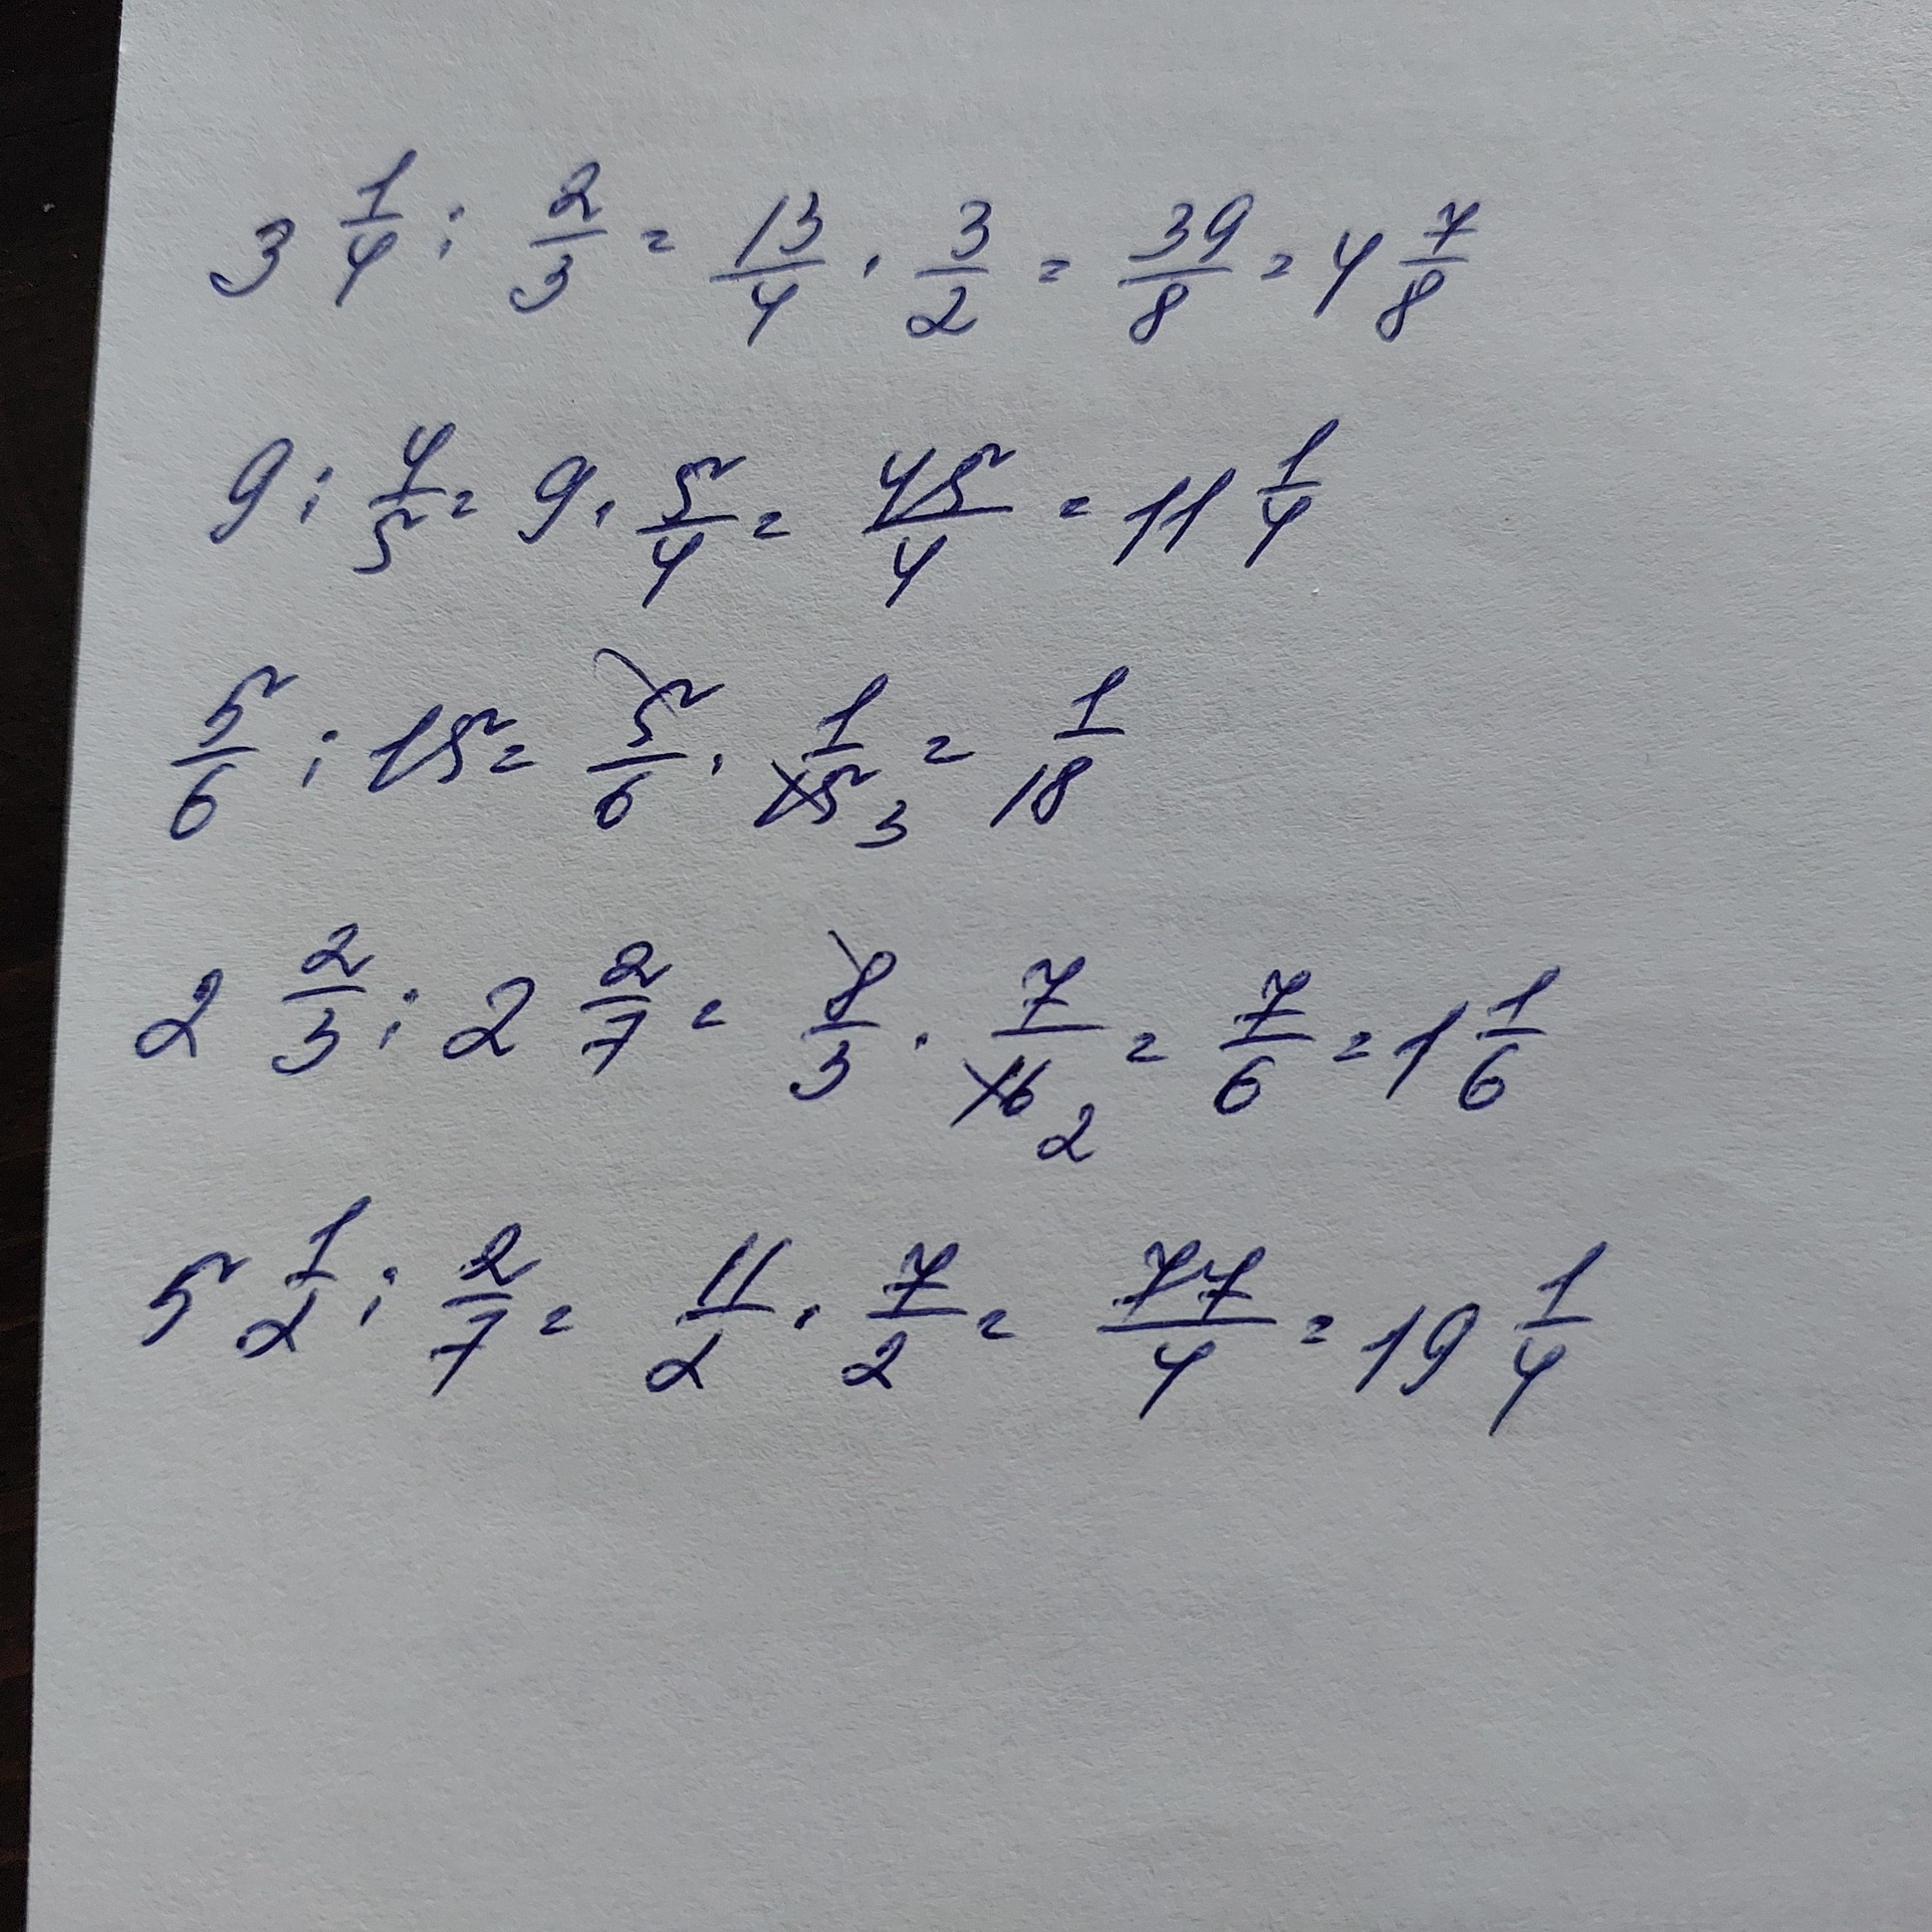 3 1/4 : 2/3 = 13/4 · 3/2 = 39/8 = 4 7/8
9 : 4/5 = 9 · 5/4 = 45/4 = 11 1/4
5/6 : 15 = 5/6 · 1/15 3 = 1/18
2 2/3 : 2 2/7 = 8/3 · 7/16 2 = 7/6 = 1 1/6
5 1/2 : 2/7 = 11/2 · 7/2 = 77/4 = 19 1/4